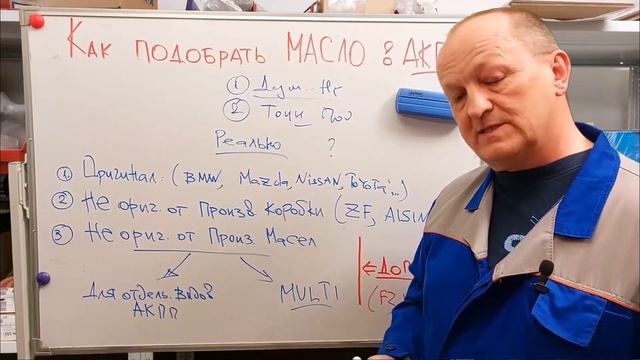 Как подобрать МАСЛО в АКП
① Дум
② Точн
Реально ?
① Оригинал: (BMW, Mazda, Nissan, Toyota...)
② Не ориг. от Произв. Коробки (ZF, AISIN
③ Не ориг. от Произ. Масел
Для отдель. видов MULTI
АКПП